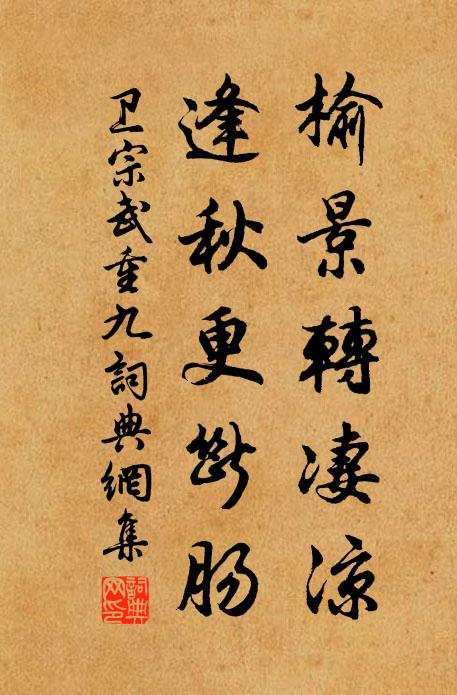 榆景轉凄涼
逢秋更斷腸
卫宗武重九詞典網集
詞典
网印